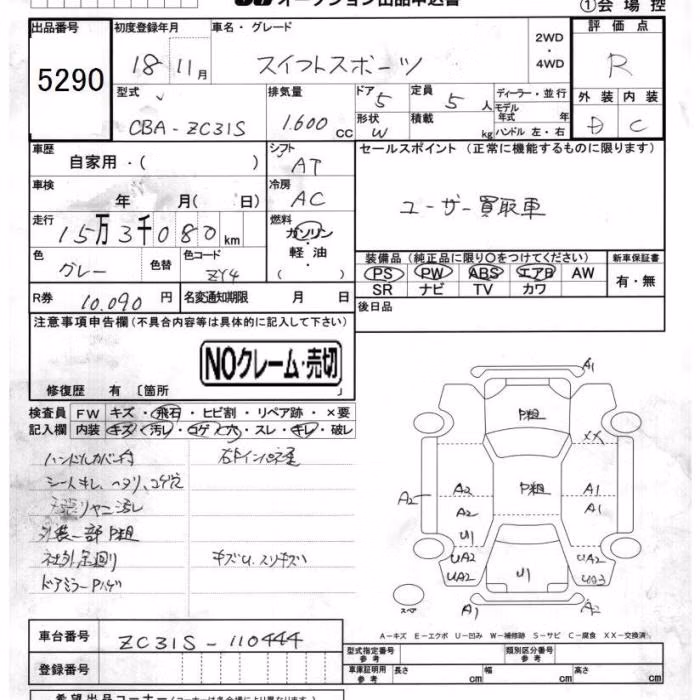 オークション出品申込書 ①会場控
出品番号 初度登録年月 車名・グレード 評価点
5290 18年 11月 スイフトスポーツ 2WD・4WD R
型式 排気量 ドア 定員 ディーラー・並行 外装 内装
CBA-ZC31S 1.600 cc 5 5人 モデル年式 年 D C
形状 W 積載 kg ハンドル 左・右
車歴 シフト セールスポイント (正常に機能するものに限ります)
自家用・( ) AT
車検 冷房
年 月( 日) AC ユーザー買取車
走行 燃料
15万3千080km ガソリン・軽油 ( )
装備品(純正品に限り○をつけてください) 新車保証書
色 色替 色コード PS PW ABS エアB AW 有・無
グレー ZY4 SR ナビ TV カワ
R券 10.090円 名変通知期限 月 日 後日品
注意事項申告欄(不具合内容等は具体的に記入して下さい)
NOクレーム・売切
修復歴 有 〔箇所 〕
検査員 FW キズ・飛石・ヒビ割・リペア跡・×要
記入欄 内装 キズ・汚レ・コゲ・穴・スレ・キレ・破レ
ハンドルカバー付
シートキレ、ヘタリ、コゲ穴
外装一部P粗
社外足廻り キズU.スリキズ
ドアミラーPハゲ
A1
P粗
XX
A2 A2 P粗 A1
A2 A1
U1
UA2 UA2
UA2 U1 UA3
スペア A1 A2
A-キズ E-エクボ U-凹み W-補修跡 S-サビ C-腐食 XX-交換済
車台番号 ZC31S-110444
型式指定番号 参考 類別区分番号 参考
登録番号 車庫証明用 参考 長さ cm 幅 cm 高さ cm
希望出品コーナー